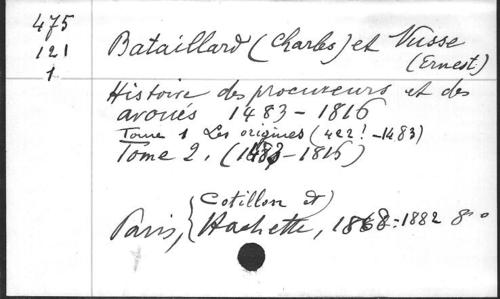 475
121
1
Bataillard (Charles) et Nusse
(Ernest.)
Histoire des procureurs et des
avoués 1483 - 1816
Tome 1 Les origines (422! - 1483)
Tome 2. (1483 - 1816)
Cotillon et
Paris, Hachette, 1868-1882 8°